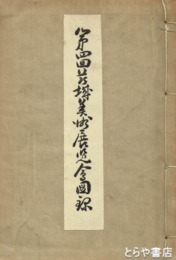 第四回茨城美術展覧会図録
とらや書店